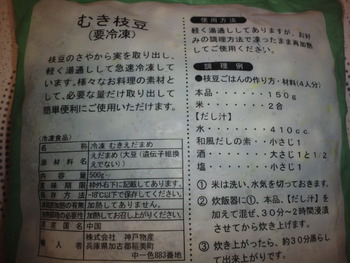 むき枝豆
(要冷凍)
枝豆のさやから実を取り出し、
軽く湯通しして急速冷凍して
います。様々なお料理の素材と
して、必要な量だけ取り出して
簡単便利にご使用いただけます。
冷凍食品
名称 冷凍 むきえだまめ
原材料名 えだまめ(大豆(遺伝子組換えでない))
内容量 500g
賞味期限 枠外右下に記載してあります。
保存方法 -18℃以下で保存してください。
加熱してありません。
加熱してお召し上がりください。
原産国 中国
輸入者 株式会社 神戸物産
兵庫県加古郡稲美町
中一色883番地
使用方法
軽く湯通ししてありますが、お好
みの調理方法で凍ったまま再加熱
してご使用ください。
調理例
●枝豆ごはんの作り方・材料(4人分)
本品・・・・・・・150g
米・・・・・・・・2合
【だし汁】
水・・・・・・・・410cc
和風だしの素・・・小さじ1
酒・・・・・・・・大さじ1と1/2
塩・・・・・・・・小さじ1
① 米は洗い、水気を切っておきます。
② 炊飯器に①、本品、【だし汁】を
加えて混ぜ、30分～2時間浸漬
させてから炊き上げます。
③ 炊き上がったら、約30分蒸らし
て出来上がりです。